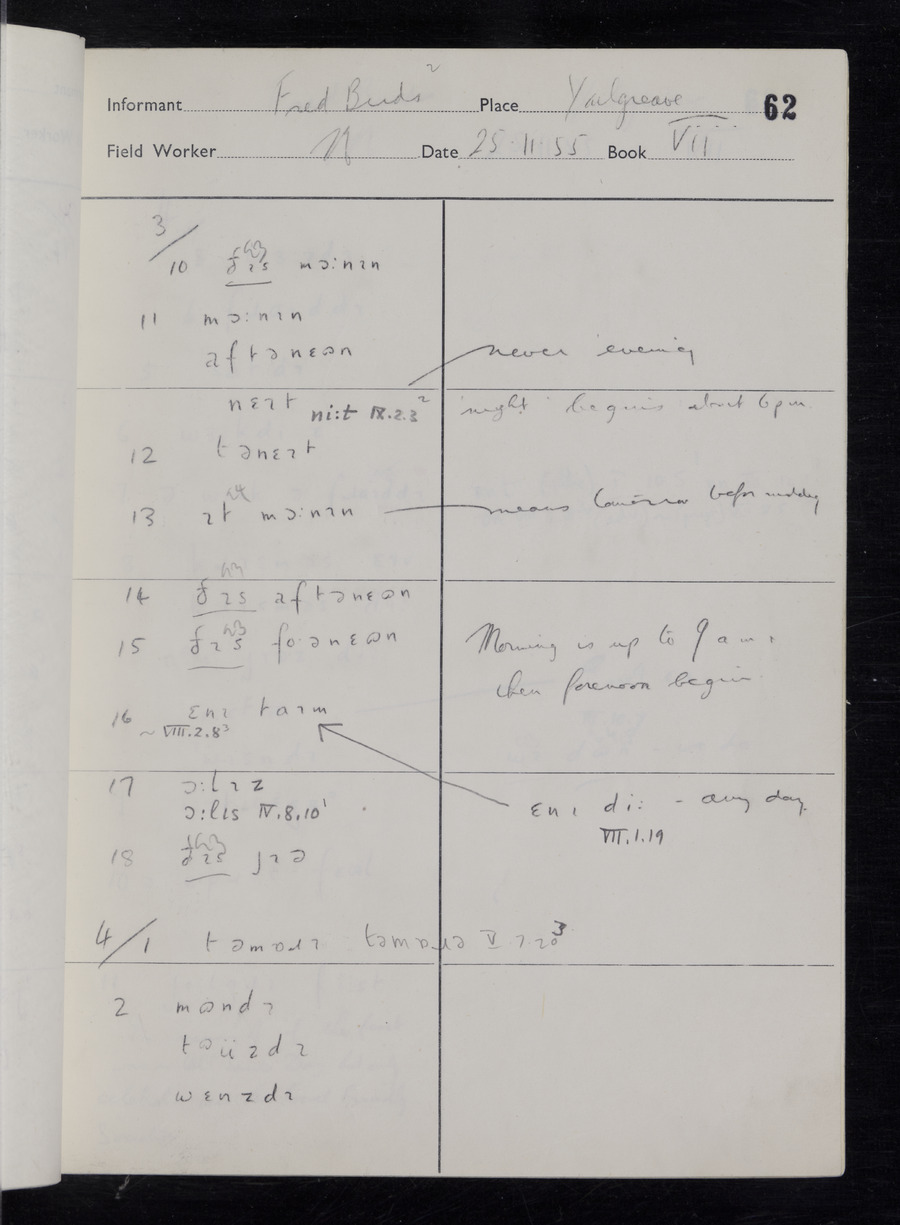 Informant Fred Buds² Place Yoalgreave 62
Field Worker Date 25 11 55 Book VII
3/
10 ðɪs mɔ:nɪn
11 mɔ:nɪn
aftənɛɷn never 'evening'
nɛɪt ni:t IX.2.3² 'night' begins about 6 p.m.
12 tənɛɪt
13 ɪt mɔ:nɪn means tomorrow before midday
14 ðɪs aftənɛɷn
15 ðɪs fo·ənɛɷn Morning is up to 9 a m.
then forenoon begins
16 ɛnɪ taɪm
~ VIII.2.8³
17 ɔ:lɪz
ɔ:lɪs IV.8.10¹ ɛnɪ di: - any day
VII.1.19
18 ðɪs jɪə
4/1 təmɒɹɪ təmɒɹə V 7.20³
2 mɷndɪ
tɷüzdɪ
wɛnzdɪ